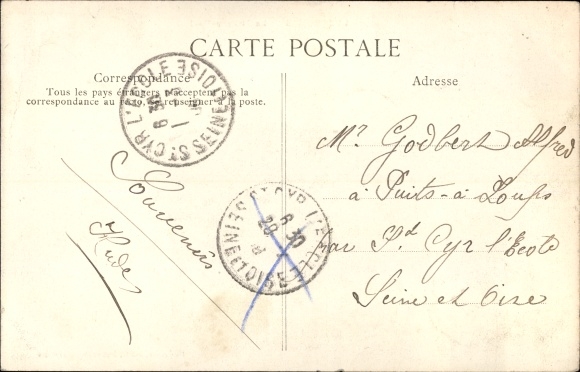 CARTE POSTALE
Correspondance
Tous les pays étrangers n'acceptent pas la
correspondance au recto. Se renseigner à la poste.
Adresse
Souvenirs
Mr Godbert Alfred
à Puits-à-Loups
par St Cyr l'École
Seine et Oise
ST CYR L'ECOLE SEINE ET OISE
6 30
28